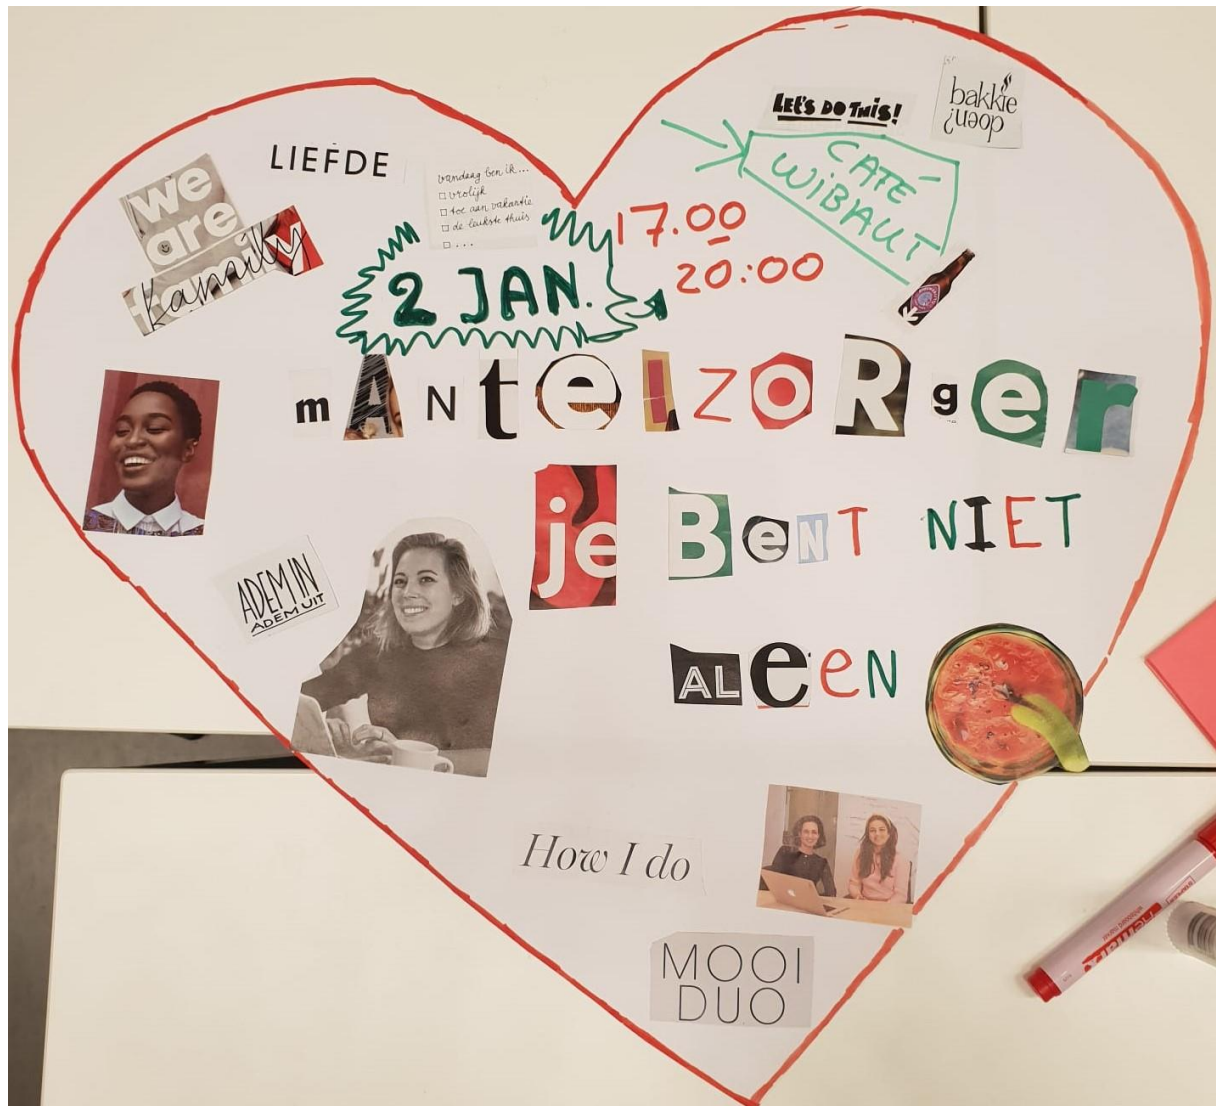 LET'S DO THIS!
bakkie
doen?
CAFÉ
WIBAUT
LIEFDE
we
are
family
family
vandaag ben ik...
vrolijk
toe aan vakantie
de leukste thuis
...
2 JAN.
17.00
20:00
mANtelZORger
je BeNT NIET
ALeeN
ADEM IN
ADEM UIT
How I do
MOOI
DUO